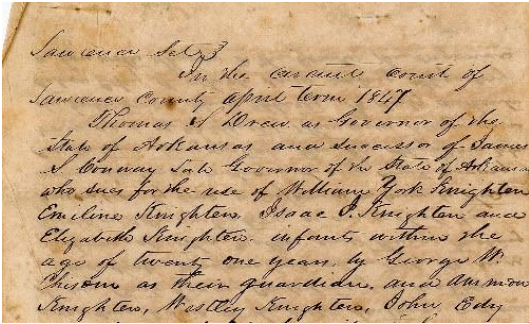 Lawrence Sct 3
In the circuit court of
Lawrence County April term 1847
Thomas S Drew as Governor of the
State of Arkansas and successor of James
S Conway late Governor of the State of Arkansas
who sues for the use of William York Knighten
Emiline Knighten Isaac J. Knighten and
Elizabeth Knighten infants within the
age of twenty one years by George W.
Chisom as their guardian and
Knighten, Westley Knighten, John Edy